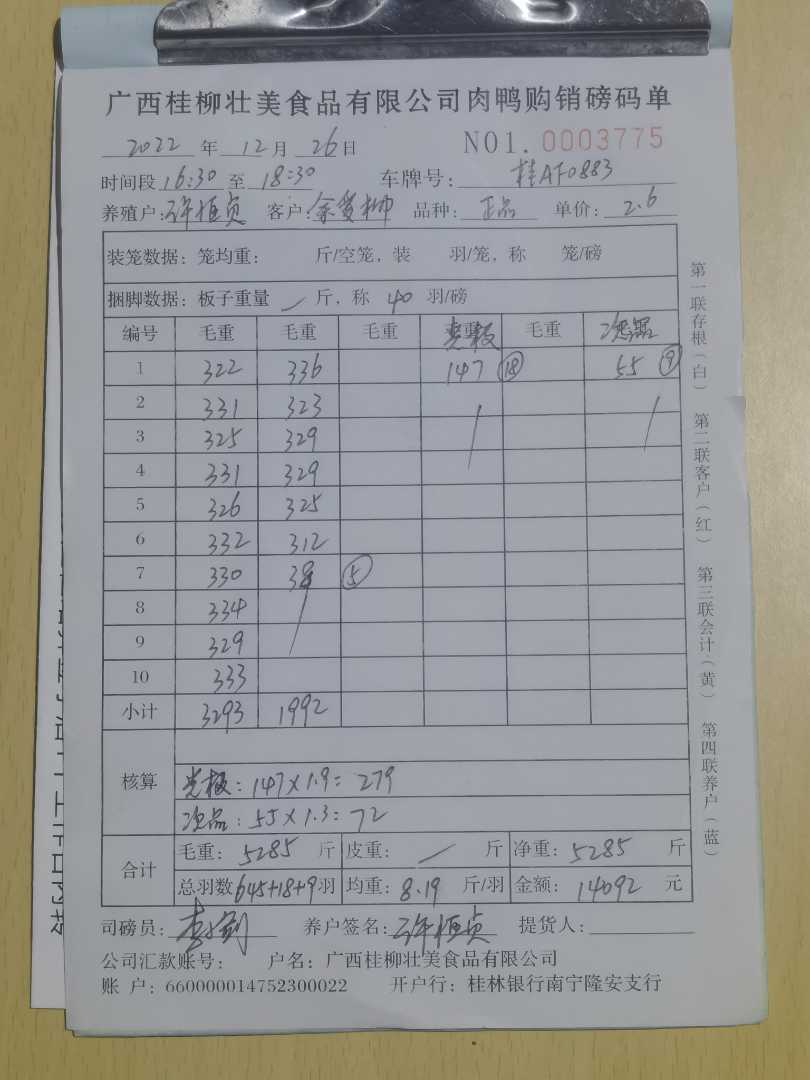 广西桂柳壮美食品有限公司肉鸭购销磅码单
2022 年 12 月 26 日 NO1. 0003775
时间段 16:30 至 18:30 车牌号: 桂AF0883
养殖户: 许恒贞 客户: 品种: 正品 单价: 2.6
装笼数据: 笼均重: 斤/空笼, 装 羽/笼, 称 笼/磅
捆脚数据: 板子重量 / 斤, 称 40 羽/磅
编号 毛重 毛重 毛重 光板 毛重 次品
1 322 336 147 ⑱ 55 ⑨
2 331 323
3 325 329
4 331 329
5 326 325
6 332 312
7 330 38 ⑤
8 334
9 329
10 333
小计 3293 1992
核算
光板: 147×1.9= 279
次品: 55×1.3= 72
合计 毛重: 5285 斤 皮重: / 斤 净重: 5285 斤
总羽数 645+18+9 羽 均重: 8.19 斤/羽 金额: 14092 元
司磅员: 养户签名: 许恒贞 提货人:
公司汇款账号: 户名: 广西桂柳壮美食品有限公司
账 户: 660000014752300022 开户行: 桂林银行南宁隆安支行
第一联存根(白) 第二联客户(红) 第三联会计(黄) 第四联养户(蓝)